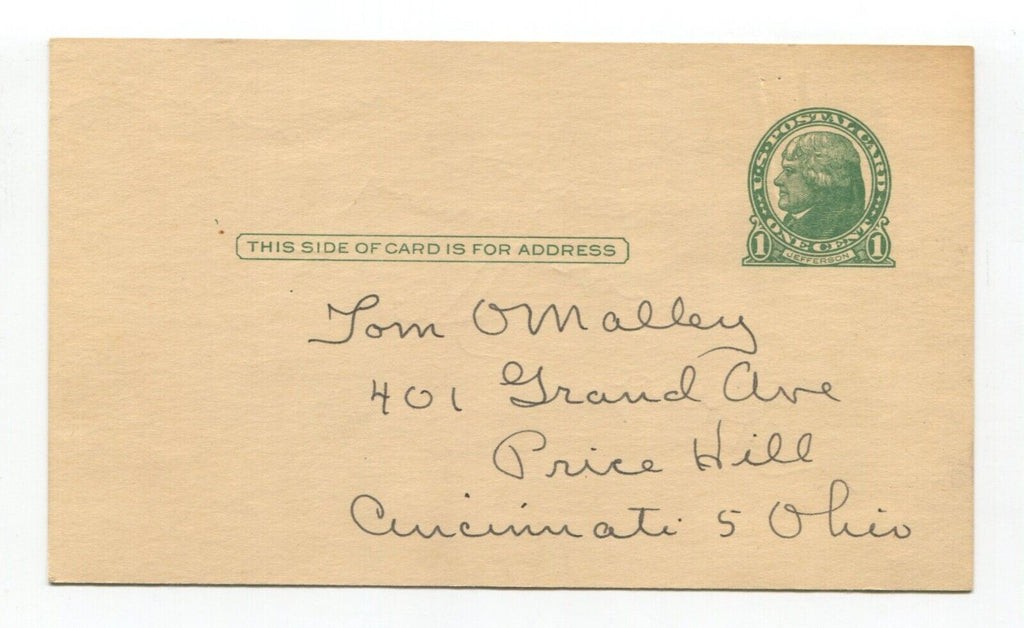 U.S. POSTAL CARD
ONE CENT
1 JEFFERSON 1
THIS SIDE OF CARD IS FOR ADDRESS
Tom OMalley
401 Grand Ave
Price Hill
Cincinnati 5 Ohio